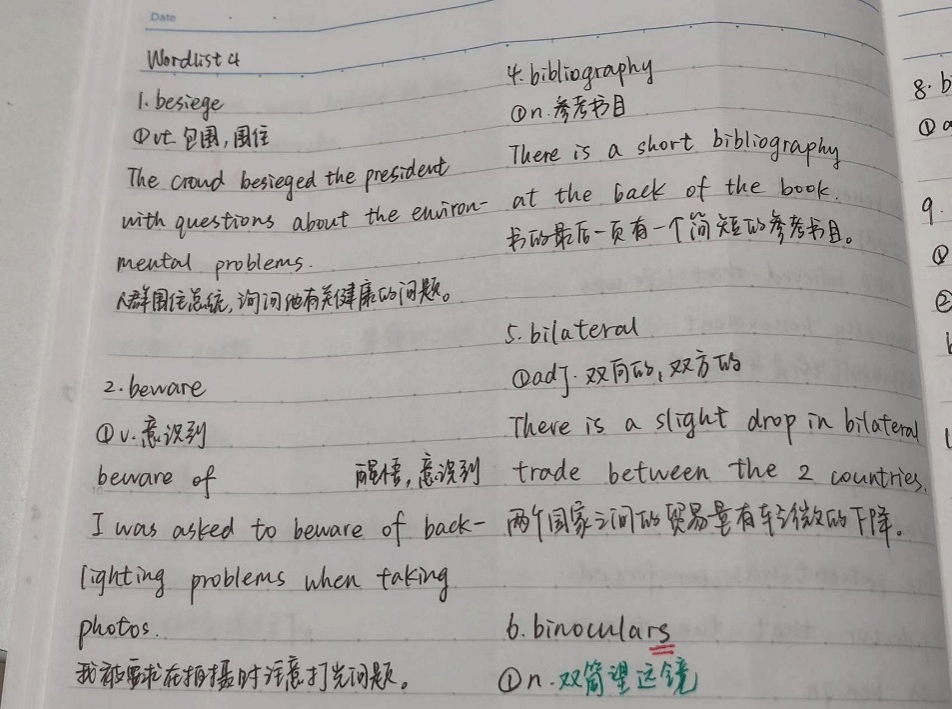 Date
Wordlist 4
1. besiege
①vt. 包围,围住
The crowd besieged the president
with questions about the environ-
mental problems.
人群围住总统,询问他有关健康的问题。
2. beware
①v. 意识到
beware of 醒悟,意识到
I was asked to beware of back-
lighting problems when taking
photos.
我被要求在拍摄时注意打光问题。
4. bibliography
①n. 参考书目
There is a short bibliography
at the back of the book.
书的最后一页有一个简短的参考书目。
5. bilateral
①adj. 双向的,双方的
There is a slight drop in bilateral
trade between the 2 countries.
两个国家之间的贸易量有轻微的下降。
6. binoculars
①n. 双筒望远镜
8. b
①a
9.
①
②